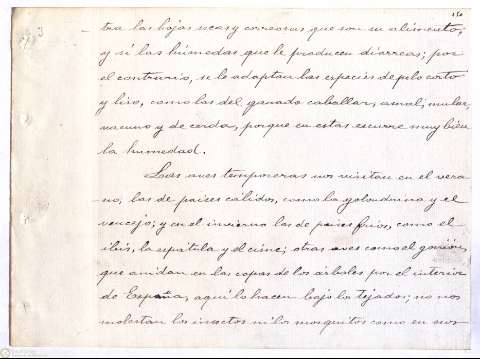 tra las hojas secas y correosas que son su alimento;
y sí las húmedas que le producen diarreas; por
el contrario, se le adaptan las especies de pelo corto
y liso, como las del ganado caballar, asnal, mular,
vacuno y de cerda, porque en estas escurre muy bien
la humedad.
Las aves temporeras nos visitan en el vera-
-no, las de paises cálidos, como la golondrina y el
vencejo; y en el invierno las de paises frios, como el
ibis, la espátula y el cisne; otras aves como el gorrión,
que anidan en las copas de los árboles por el interior
de España, aquí lo hacen bajo los tejados; no nos
molestan los insectos ni los mosquitos como en esos